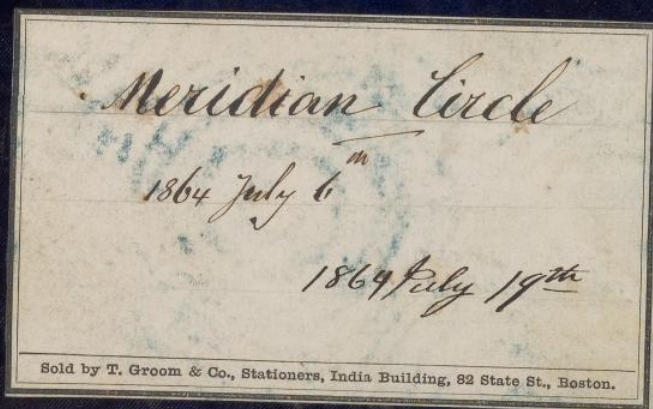 Meridian Circle
1864 July 6
1864 July 19th
Sold by T. Groom & Co., Stationers, India Building, 82 State St., Boston.